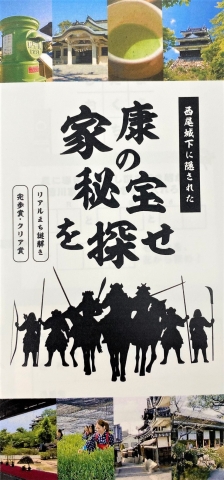 西尾城下に隠された
家康の
秘宝
を探せ
リアルまち謎解き
完歩賞・クリア賞